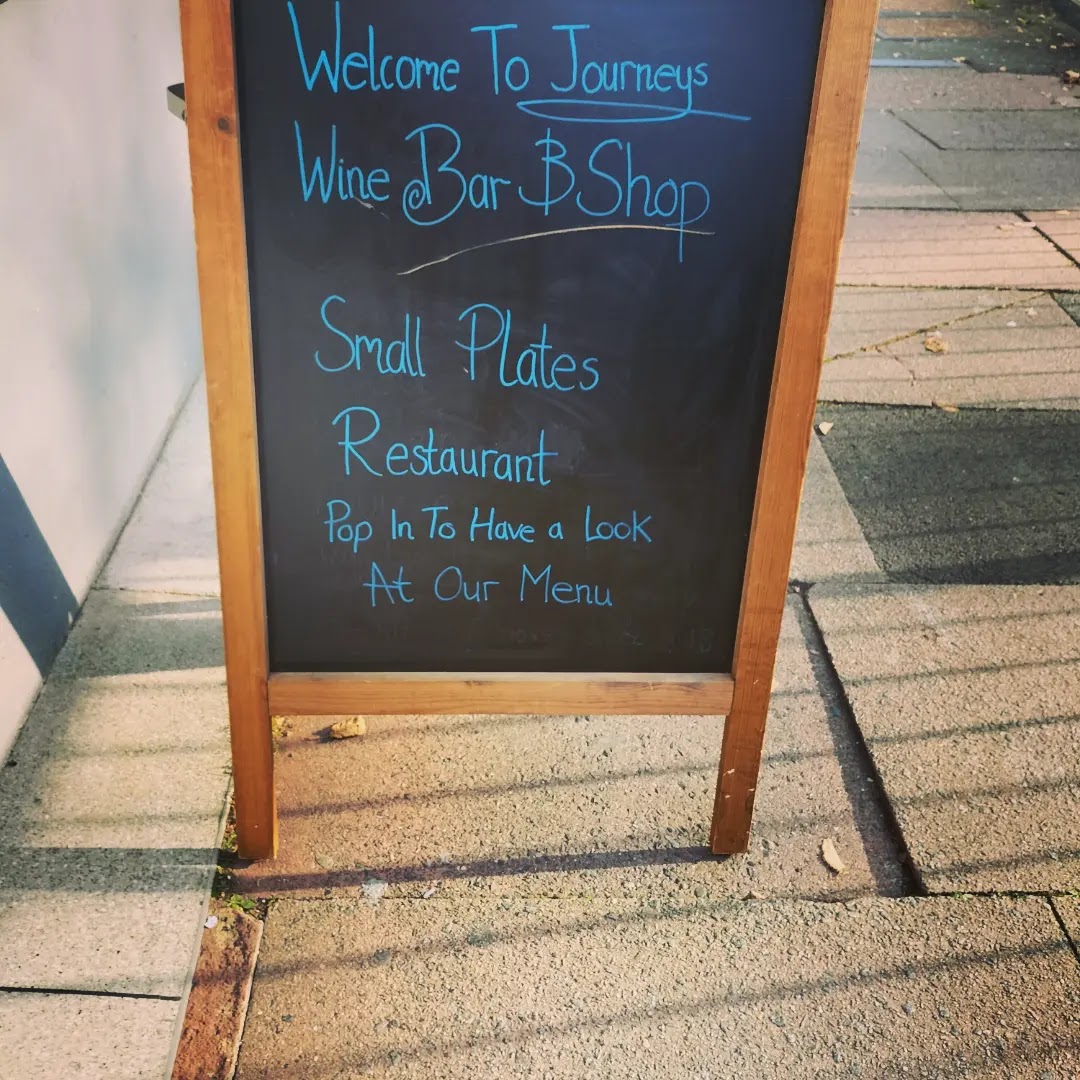 Welcome To Journeys
Wine Bar & Shop
Small Plates
Restaurant
Pop In To Have a Look
At Our Menu